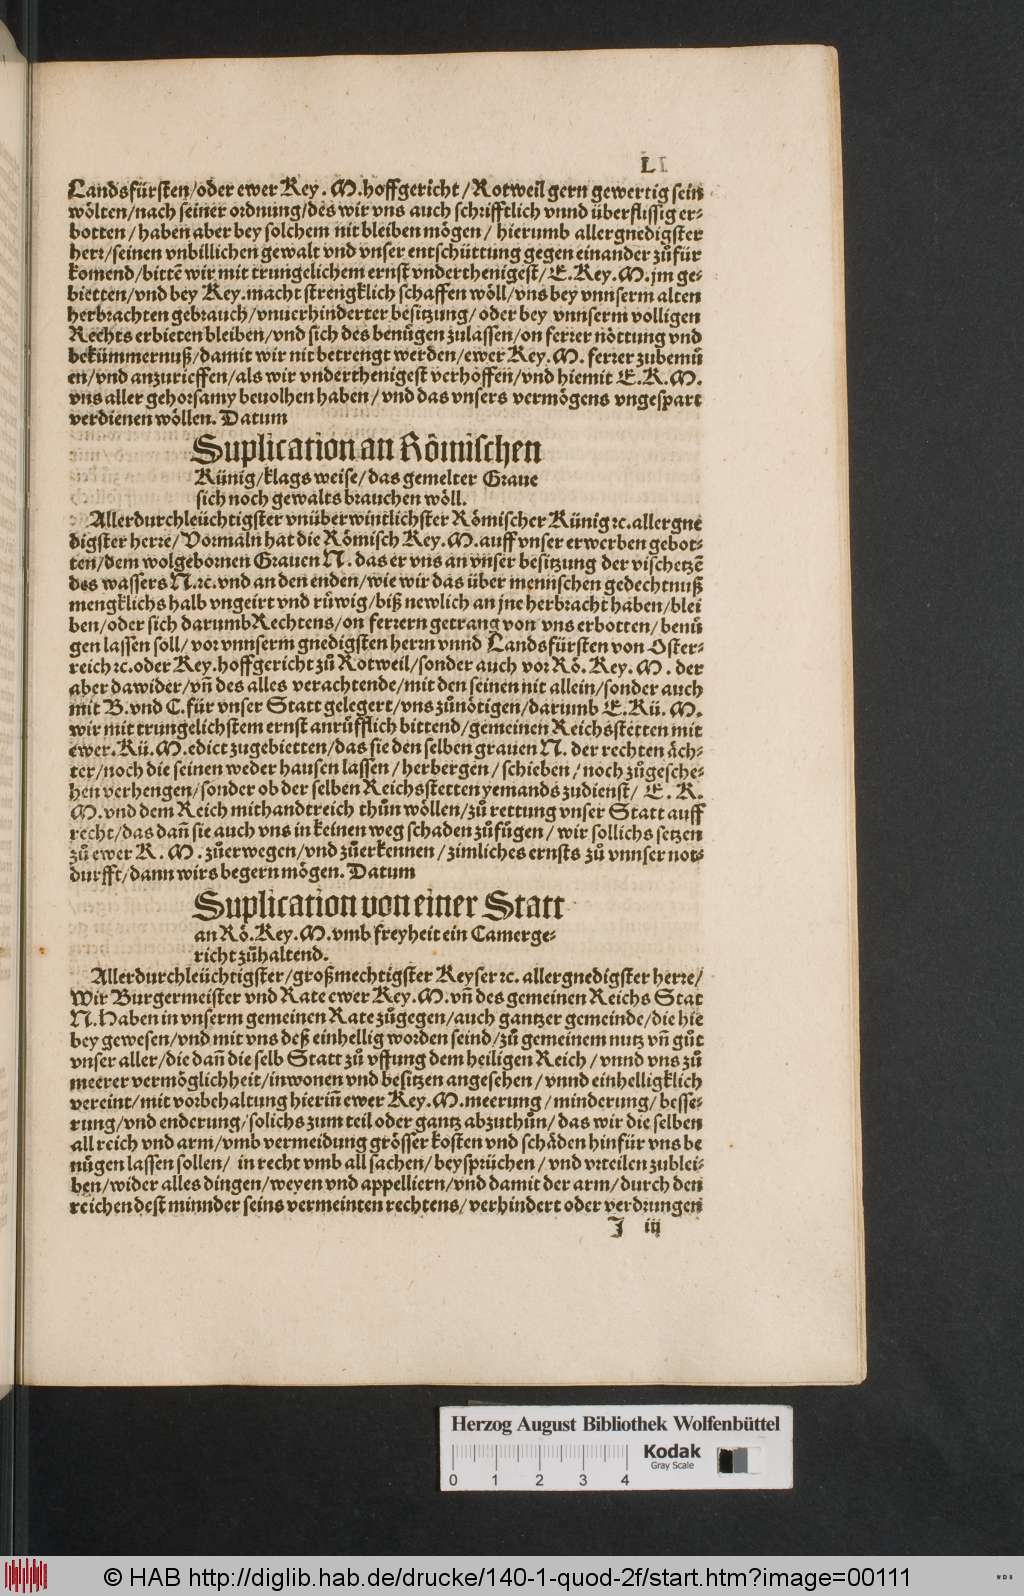 LI
Landsfürsten/oder ewer Key. M.hoffgericht/Rotweil gern gewertig sein
wölten/nach seiner ordnung/des wir vns auch schrifftlich vnnd überflissig er⸗
botten/haben aber bey solchem nit bleiben mögen/ hierumb allergnedigster
herr/seinen vnbillichen gewalt vnd vnser entschüttung gegen einander zůfür
komend/bittē wir mit trungelichem ernst vnderthenigest/E.Key.M.jm ge⸗
bietten/vnd bey Key.macht strengklich schaffen wöll/vns bey vnnserm alten
herbrachten gebrauch/vnuerhinderter besitzung/oder bey vnnserm volligen
Rechts erbieten bleiben/vnd sich des benügen zulassen/on ferrer nöttung vnd
bekümmernuß/damit wir nit betrengt werden/ewer Key.M. ferrer zubemü
en/vnd anzurieffen/als wir vnderthenigest verhoffen/vnd hiemit E.K.M.
vns aller gehorsamy beuolhen haben/vnd das vnsers vermögens vngespart
verdienen wöllen. Datum
Suplication an Römischen
Künig/klags weise/das gemelter Graue
sich noch gewalts brauchen wöll.
Allerdurchleüchtigster vnüberwintlichster Römischer Künig ꝛc.allergne
digster herre/Vormaln hat die Römisch Key.M.auff vnser erwerben gebot⸗
ten/dem wolgebornen Grauen N. das er vns an vnser besitzung der vischetzē
des wassers N.ꝛc.vnd an den enden/wie wir das über mennschen gedechtnuß
mengklichs halb vngeirt vnd rüwig/biß newlich an jne herbracht haben/blei
ben/oder sich darumb Rechtens/on ferrern getrang von vns erbotten/benü
gen lassen soll/vor vnnserm gnedigsten herrn vnnd Landsfürsten von Oster⸗
reich ꝛc.oder Key.hoffgericht zů Rotweil/sonder auch vor Rö.Key.M. der
aber dawider/vñ des alles verachtende/mit den seinen nit allein/sonder auch
mit B.vnd C.für vnser Statt gelegert/vns zůnötigen/darumb E.Kü.M.
wir mit trungelichstem ernst anrüfflich bittend/gemeinen Reichsstetten mit
ewer.Kü.M.edict zugebietten/das sie den selben grauen N. der rechten äch⸗
ter/noch die seinen weder hausen lassen/herbergen/schieben/noch zůgesche⸗
hen verhengen/sonder ob der selben Reichsstetten yemands zudienst/ E. K.
M.vnd dem Reich mithandtreich thůn wöllen/zů rettung vnser Statt auff
recht/das dañ sie auch vns in keinen weg schaden zůfügen/wir sollichs setzen
zů ewer K.M.zůerwegen/vnd zůerkennen/zimliches ernsts zů vnnser not⸗
durfft/dann wirs begern mögen. Datum
Suplication von einer Statt
an Rö.Key.M.vmb freyheit ein Camerge⸗
richt zůhaltend.
Allerdurchleüchtigster/großmechtigster Keyser ꝛc. allergnedigster herre/
Wir Burgermeister vnd Rate ewer Key.M.vñ des gemeinen Reichs Stat
N.Haben in vnserm gemeinen Rate zůgegen/auch gantzer gemeinde/die hie
bey gewesen/vnd mit vns deß einhellig worden seind/zů gemeinem nutz vñ gůt
vnser aller/die dañ die selb Statt zů vffung dem heiligen Reich/vnnd vns zů
meerer vermöglichheit/inwonen vnd besitzen angesehen/vnnd einhelligklich
vereint/mit vorbehaltung hieriñ ewer Key.M.meerung/minderung/besse⸗
rung/vnd enderung/solichs zum teil oder gantz abzuthůn/das wir die selben
all reich vnd arm/vmb vermeidung grösser kosten vnd schäden hinfür vns be
nügen lassen sollen/ in recht vmb all sachen/beysprüchen/vnd vrteilen zublei⸗
ben/wider alles dingen/weyen vnd appelliern/vnd damit der arm/durch den
reichen dest minnder seins vermeinten rechtens/verhindert oder verdrungen
J iij
Herzog August Bibliothek Wolfenbüttel
0 1 2 3 4
Kodak
Gray Scale
© HAB http://diglib.hab.de/drucke/140-1-quod-2f/start.htm?image=00111